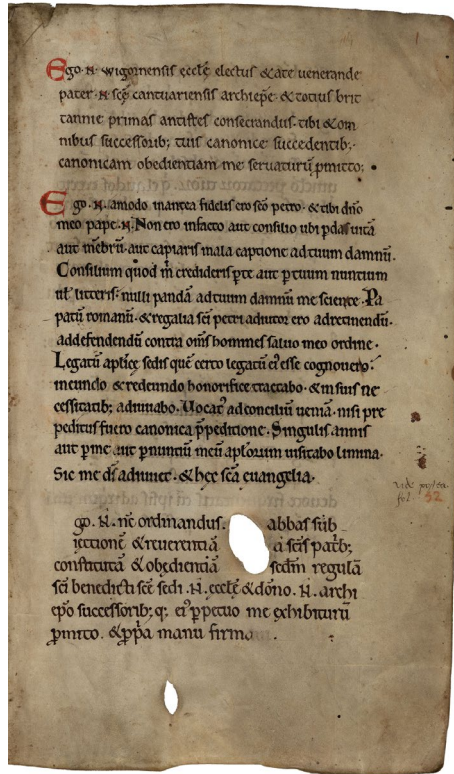 Ego .N. wigornensis eccłę electus & a te uenerande
pater .N. scę cantuariensis archiepẽ & totius brit
tannie primas antistes consecrandus. tibi & om
nibus successorib; tuis canonice succedentib;
canonicam obedientiam me seruaturũ ꝓmitto;
Ego .N. amodo inantea fidelis ero sc̃o petro. & tibi dño
meo pape .N. Non ero infacto aut consilio ubi ꝑdas uitã
aut mẽbrũ. aut capiaris mala captione ad tuum damnũ.
Consilium quod m̃ credideris ꝑ te aut ꝑ tuum nuntium
ul̃ litteris. nulli pandã ad tuum damnũ me sciente. Pa
patũ romanũ. & regalia sc̃i petri adiutor ero adretinendũ.
addefendendũ contra om̃s homines saluo meo ordine.
Legatũ aplicę sedis quẽ certo legatũ ei᷒ esse cognouero.
ineundo & redeundo honorifice tractabo. & insuis ne
cessitatib; adiuuabo. Uocat᷒ ad conciliũ ueniã. nisi pre
peditus fuero canonica p̃peditione. Singulis annis
aut ꝑ me aut ꝑ nuntiũ meũ apl̃orum uisitabo limina.
Sic me d̃s adiuuet. & hęc sc̃a euangelia.
go .N. nc̃ ordinandus. abbas sub
iectionẽ & reuerentiã a sc̃is patrib;
constitutã & obędientiã sedm̃ regulã
sc̃i benedicti sc̃ę sedi .N. ęccłę & dõno .N. archi
ep̃o successorib; q; ei᷒ ꝑpetuo me exhibiturũ
ꝓmitto. & ꝓp̃a manu firmo.
vide postea
fol 52